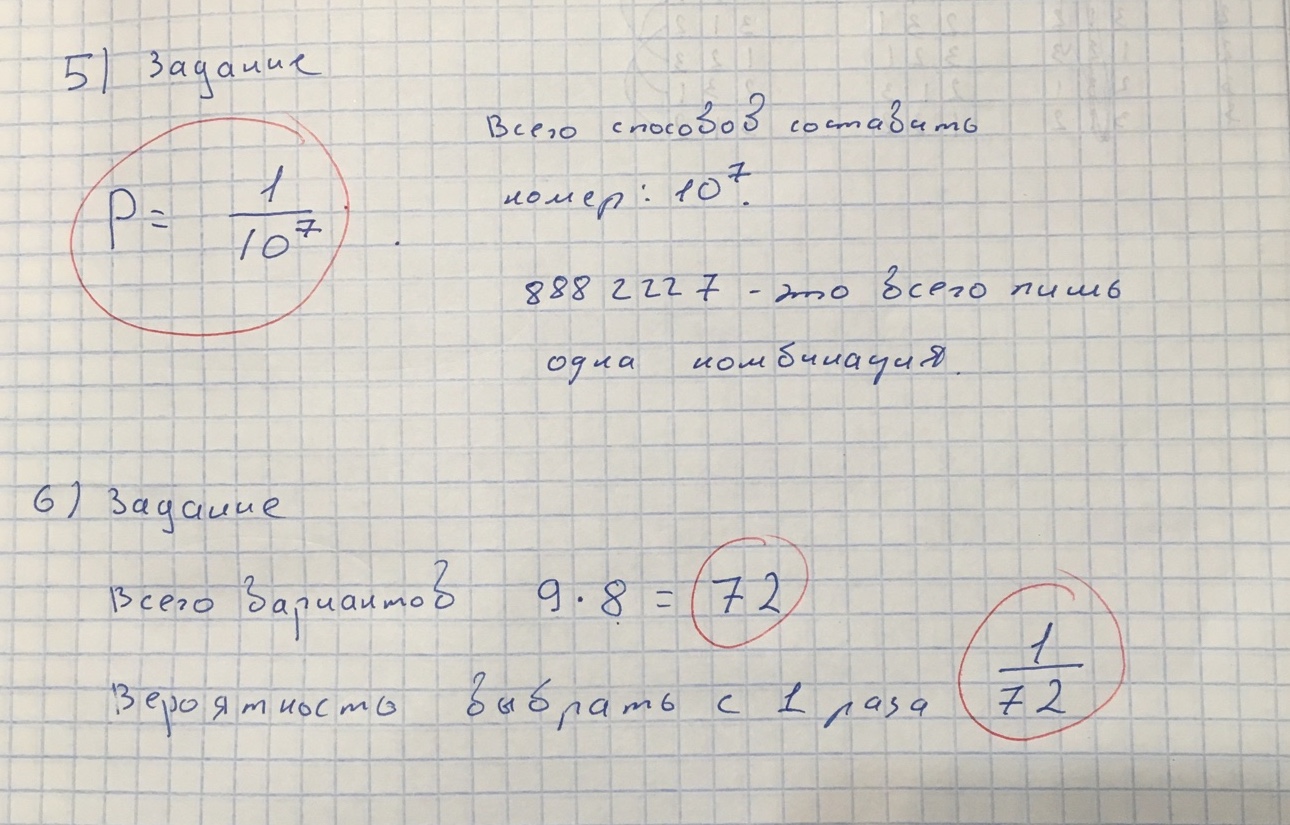 5) Задание
P = 1/10^7.
Всего способов составить
номер: 10^7.
888 222 7 - это всего лишь
одна комбинация.
6) Задание
Всего вариантов 9 · 8 = 72
Вероятность выбрать с 1 раза 1/72